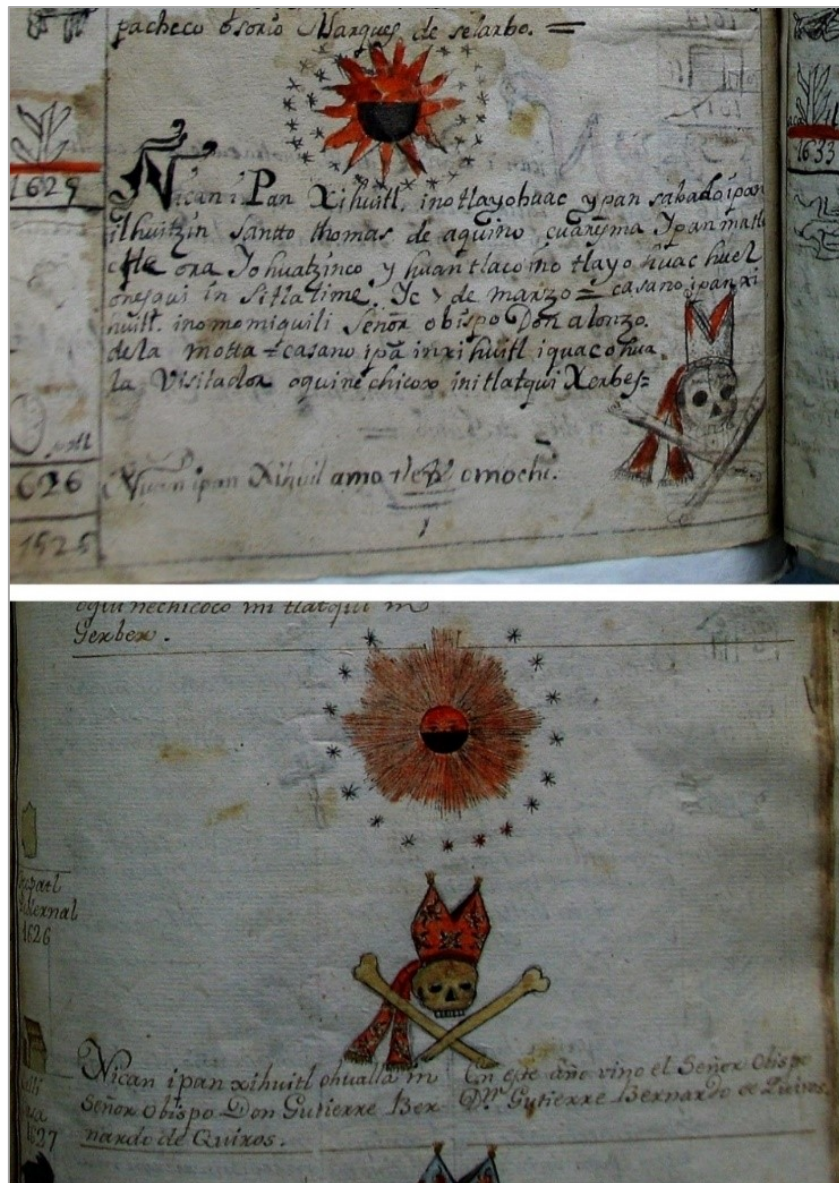 pacheco osorio Marques de selarbo. =
1629
Nican i Pan Xihuitl, inotlayohuac ypan sabado ipan
ilhuitzin santto thomas de aquino cuaresma Ypan matl
ora Yohuatzinco y huan tlaco ino tlayo huac huel
onesqui in Sitlatime. Yc 7 de marzo = casano ipan xi
huitl. inomomiquili Señor obispo Don alonzo.
dela motta = casano ipa inxihuitl iquac ohua
la Visitador oquinechicoco initlatqui Xerbes=
626
Nican ipan Xihuil amo omochi.
1525
1614
1633
oquinechicoco initlatqui in
Gerbex.
1626
Nican ipan xihuitl ohualla in
Señor Obispo Don Gutierre Ber-
nardo de Quiros.
En este año vino el Señor Obispo
Dn. Gutierre Bernardo de Quiros.
1627